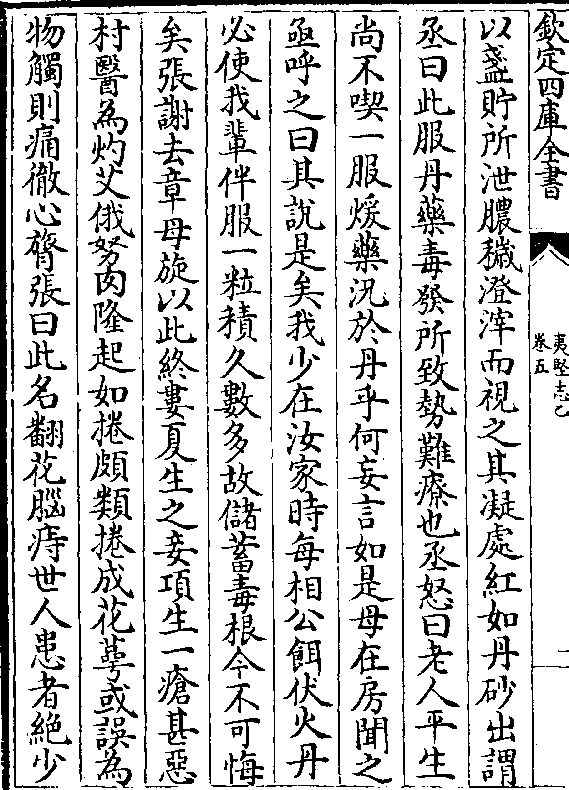 欽定四庫全書
夷堅志乙
卷五
二
以盞貯所泄膿穢澄滓而視之其凝處紅如丹砂出謂
丞曰此服丹藥毒發所致勢難療也丞怒曰老人平生
尚不喫一服煖藥況於丹乎何妄言如是母在房聞之
亟呼之曰其說是矣我少在汝家時每相公餌伏火丹
必使我輩伴服一粒積久數多故儲蓄毒根今不可悔
矣張謝去章母旋以此終婁夏生之妾項生一瘡甚惡
村醫為灼艾俄努肉隆起如捲頗類捲成花蕚或誤為
物觸則痛徹心膂張曰此名翻花腦痔世人患者絕少